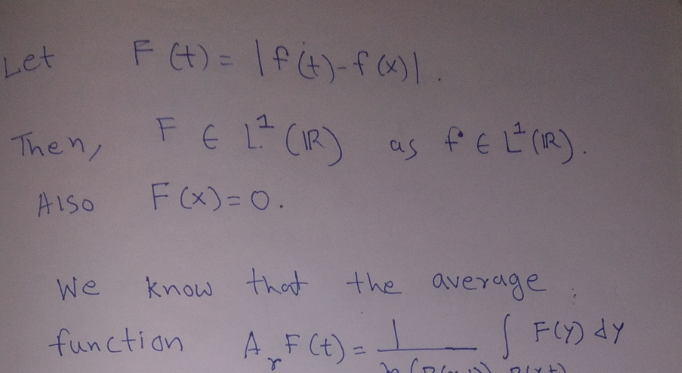 Let F(t) = |f(t)-f(x)|.
Then, F ∈ L¹(ℝ) as f ∈ L¹(ℝ).
Also F(x)=0.
We know that the average
function A_r F(t) = 1 ∫ F(y) dy